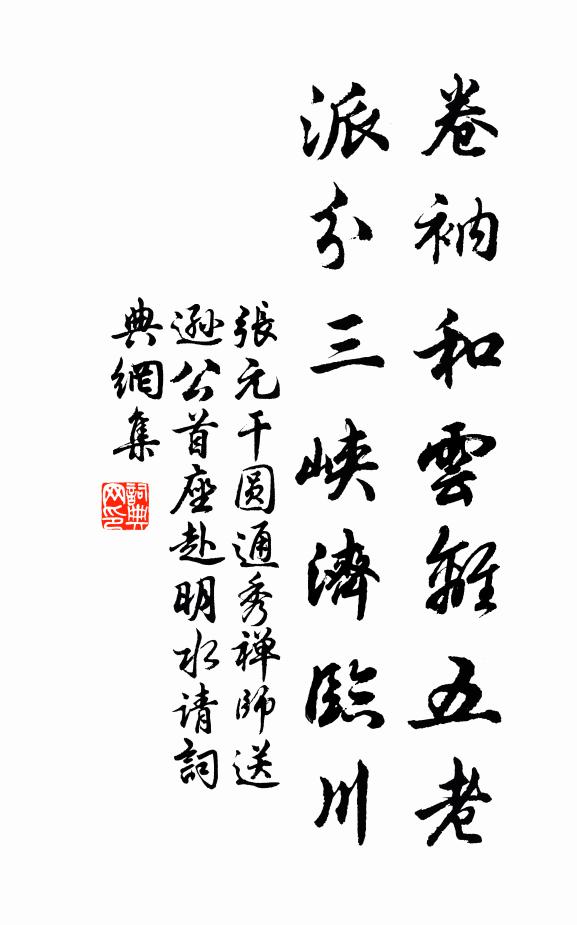 卷衲和雲離五老
派分三峽濟臨川
張元干圆通秀禅師送
遜公首座赴明水请詞
典網集
詞典網印